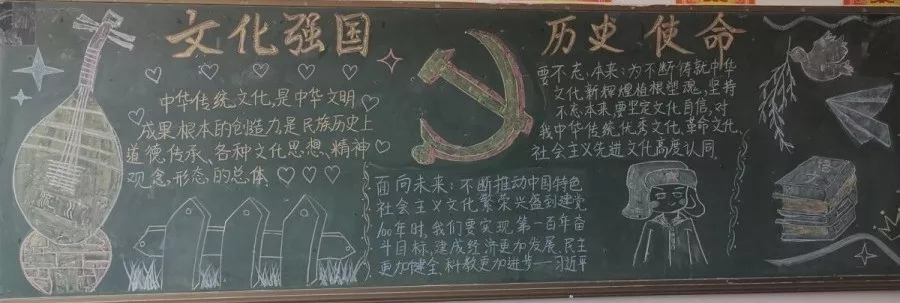 文化强国
中华传统文化,是中华文明
成果根本的创造力,是民族历史上
道德传承、各种文化思想、精神
观念、形态的总体
历史使命
要不忘本来:为不断铸就中华
文化新辉煌植根塑魂,坚持
不忘本来,要坚定文化自信,对
我中华传统优秀文化、革命文化、
社会主义先进文化高度认同.
面向未来:不断推动中国特色
社会主义文化繁荣兴盛到建党
100年时,我们要实现第一百年奋
斗目标,建成经济更加发展、民主
更加健全、科教更加进步——习近平